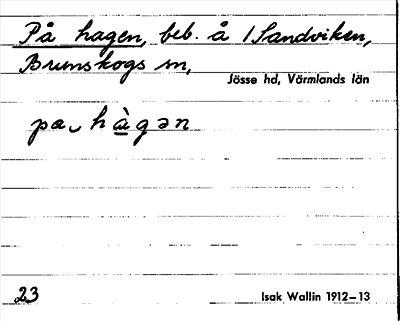 På hagen, beb. å 1 Sandviken,
Brunskogs sn,
Jösse hd, Värmlands län
pa ̮ hàgən
23
Isak Wallin 1912–13